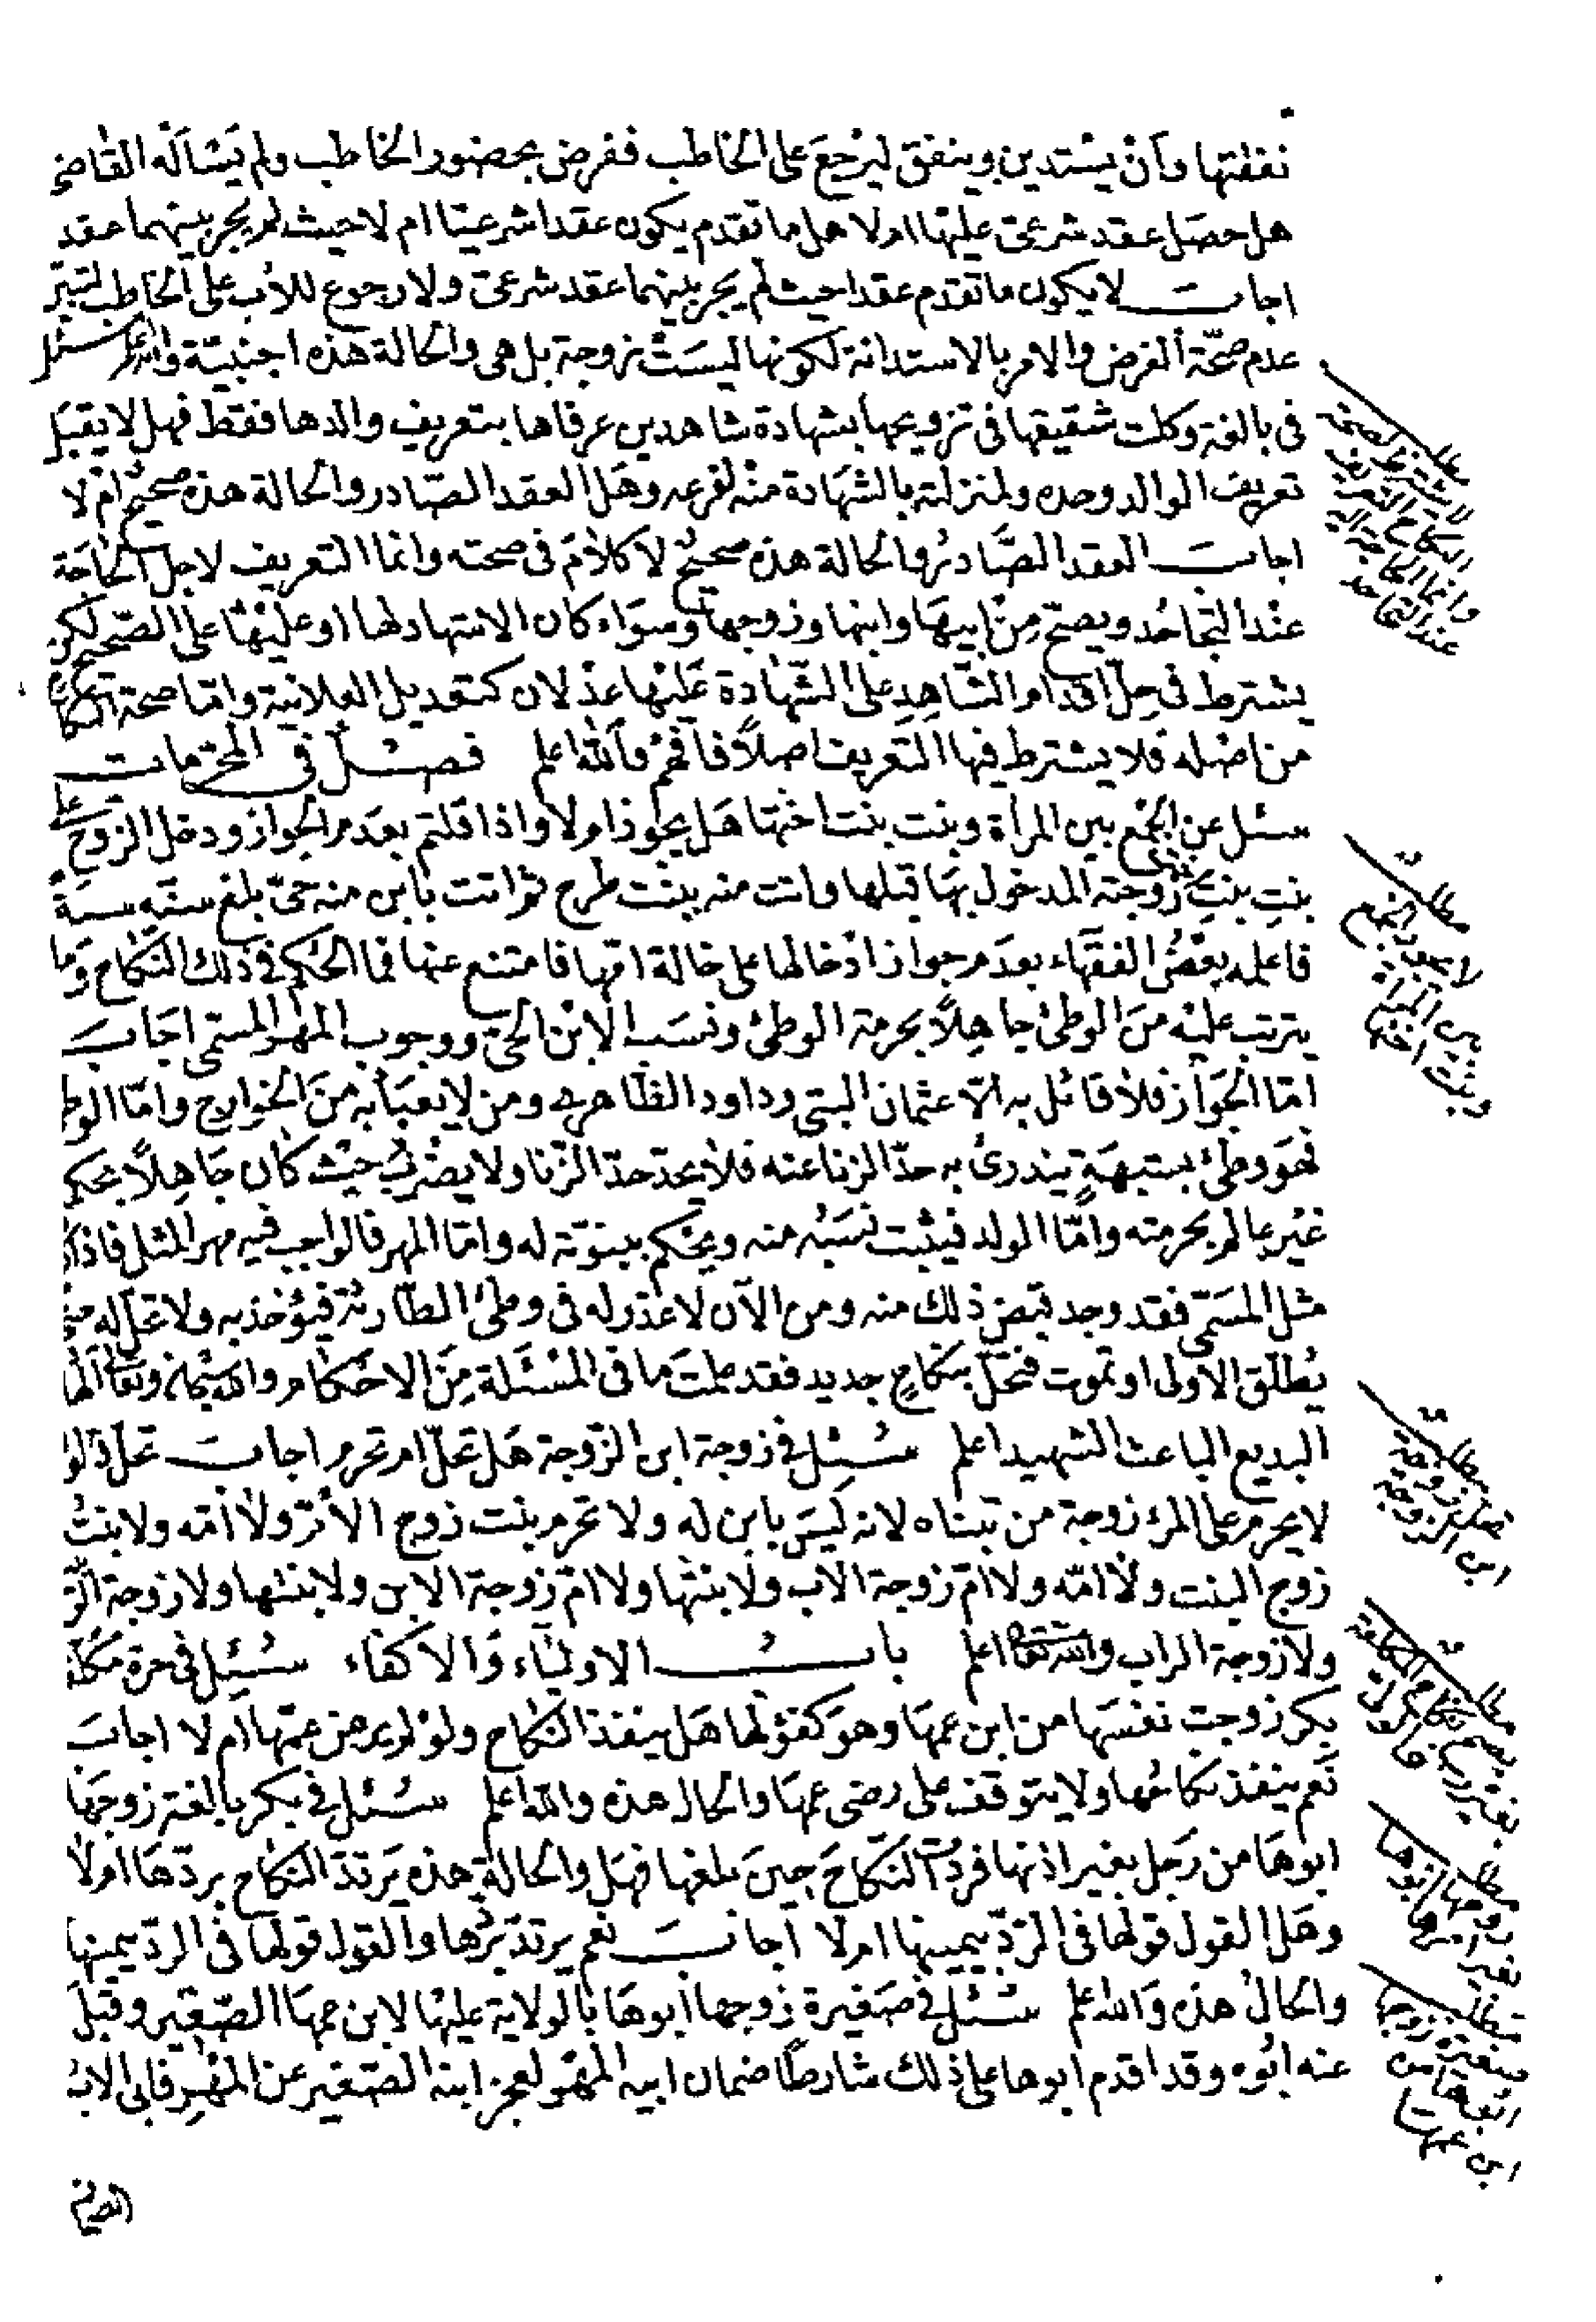 نفقتها وأن يستدين وينفق ليرجع على الخاطب ففرض بحضور الخاطب ولم يسأله القاضي
هل حصل عقد شرعي عليها ام لا هل ما تقدم يكون عقدا شرعيا ام لا حيث لم يجر بينهما عقد
اجاب لا يكون ما تقدم عقدا حيث لم يجر بينهما عقد شرعي ولا رجوع للأب على الخاطب
عدم صحة الفرض والامر بالاستدانة لكونها ليست زوجة بل هي والحالة هذه اجنبية والله اعلم سئل
في بالغة وكلت شقيقها في تزويجها بشهادة شاهدين عرفاها بتعريف والدها فقط فهل لا يقبل
تعريف الوالد وحده ولمنزلته بالشهادة منه لفرعه وهل العقد الصادر والحالة هذه صحيح ام لا
اجاب العقد الصادر والحالة هذه صحيح لا كلام في صحته وانما التعريف لاجل الحاجة
عند التجاحد ويصح من ابيها وابنها وزوجها وسواء كان الاشهاد لها او عليها على الصحيح لكن
يشترط في حل اقدام الشاهد على الشهادة عليها عدلان كتعديل العلانية واما صحة النكاح
من اصله فلا يشترط فيها التعريف اصلا فافهم والله اعلم فصل في المحرمات
سئل عن الجمع بين المرأة وبنت بنت اختها هل يجوز ام لا واذا قلتم بعدم الجواز ودخل الزوج على
بنت بنت زوجته المدخول بها قبلها واتت منه ببنت طرح ثم اتت بابن منه حي بلغ سنه سنة
فاعلمه بعض الفقهاء بعدم جواز ادخالها على خالة امها فامتنع عنها فما الحكم في ذلك النكاح وما
يترتب عليه من الوطئ جاهلا بحرمة الوطئ ونسب الابن الحي ووجوب المهر المسمى اجاب
اما الجواز فلا قائل به الا عثمان البتي وداود الظاهري ومن لا يعبأ به من الخوارج واما الوطئ
فهو وطئ بشبهة يندرئ به حد الزنا عنه فلا يحد حد الزنا ولا يضرب حيث كان جاهلا بحكم
غير عالم بحرمته واما الولد فيثبت نسبه منه ويحكم ببنوته له واما المهر فالواجب فيه مهر المثل فاذا كان
مثل المسمى فقد وجد قبض ذلك منه ومن الآن لا عذر له في وطئ الطارئة فيؤخذ به ولا تحل له حتى
يطلق الاولى او تموت فتحل بنكاح جديد فقد علمت ما في المسئلة من الاحكام والله سبحانه وتعالى
البديع الباعث الشهيد اعلم سئل في زوجة ابن الزوجة هل تحل ام تحرم اجاب تحل قالوا
لا يحرم على المرء زوجة من تبناه لانه ليس بابن له ولا تحرم بنت زوج الأم ولا امه ولا بنت
زوج البنت ولا امه ولا ام زوجة الاب ولا بنتها ولا ام زوجة الابن ولا بنتها ولا زوجة الربيب
ولا زوجة الراب والله تعالى اعلم باب الاولياء والاكفاء سئل في حرة مكلفة
بكر زوجت نفسها من ابن عمها وهو كفؤ لها هل ينفذ النكاح ولو لم يرض عمها ام لا اجاب
نعم ينفذ نكاحها ولا يتوقف على رضى عمها والحال هذه والله اعلم سئل في بكر بالغة زوجها
ابوها من رجل بغير اذنها فردت النكاح حين بلغها فهل والحالة هذه يرتد النكاح بردها ام لا
وهل القول قولها في الرد بيمينها ام لا اجاب نعم يرتد بردها والقول قولها في الرد بيمينها
والحال هذه والله اعلم سئل في صغيرة زوجها ابوها بالولاية عليها لابن عمها الصغير وقبل
عنه ابوه وقد اقدم ابوها على ذلك شارطا ضمان ابيه المهر لعجز ابنه الصغير عن المهر فابى الاب
مطلب
لا يجوز الجمع
بين المرأة
وبنت اختها
مطلب
تحل زوجة
ابن الزوجة
مطلب
زوجها ابوها
مطلب
صغيرة زوجها
ابوها من
ابن عمها